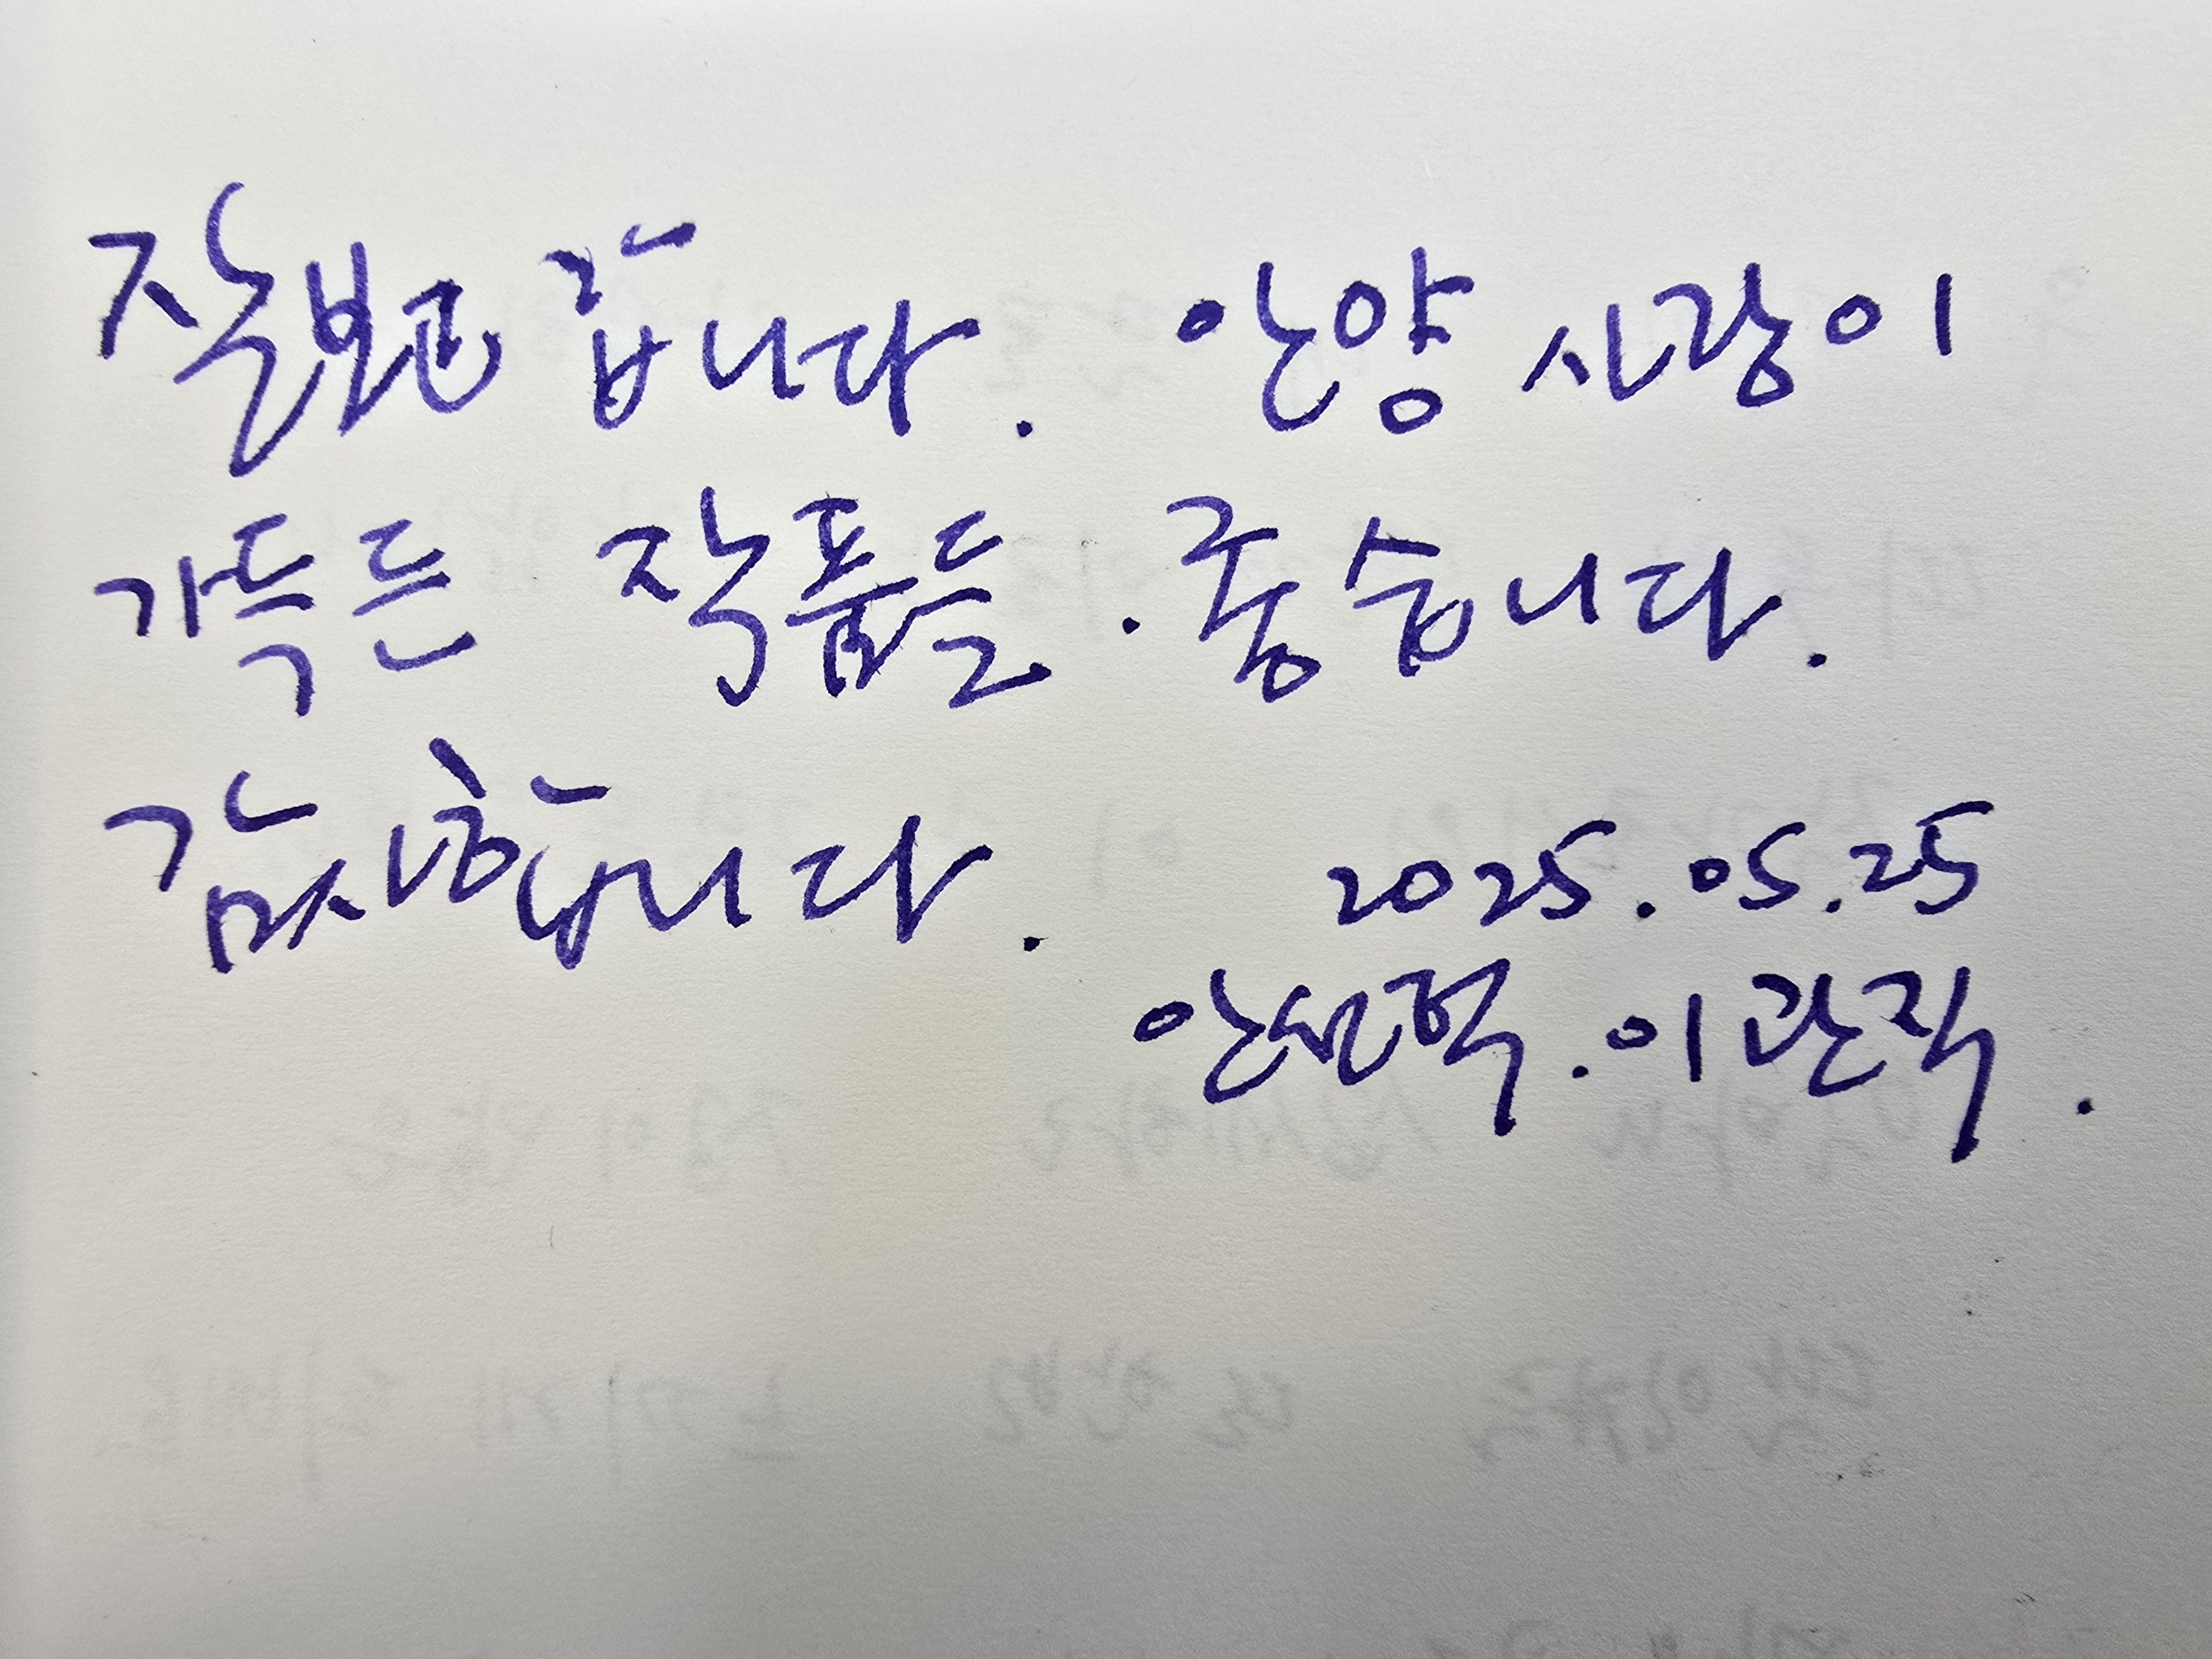 잘보고 갑니다. 안양 사랑이
가득든 작품들. 좋습니다.
감사합니다. 2025.05.25
이관직.